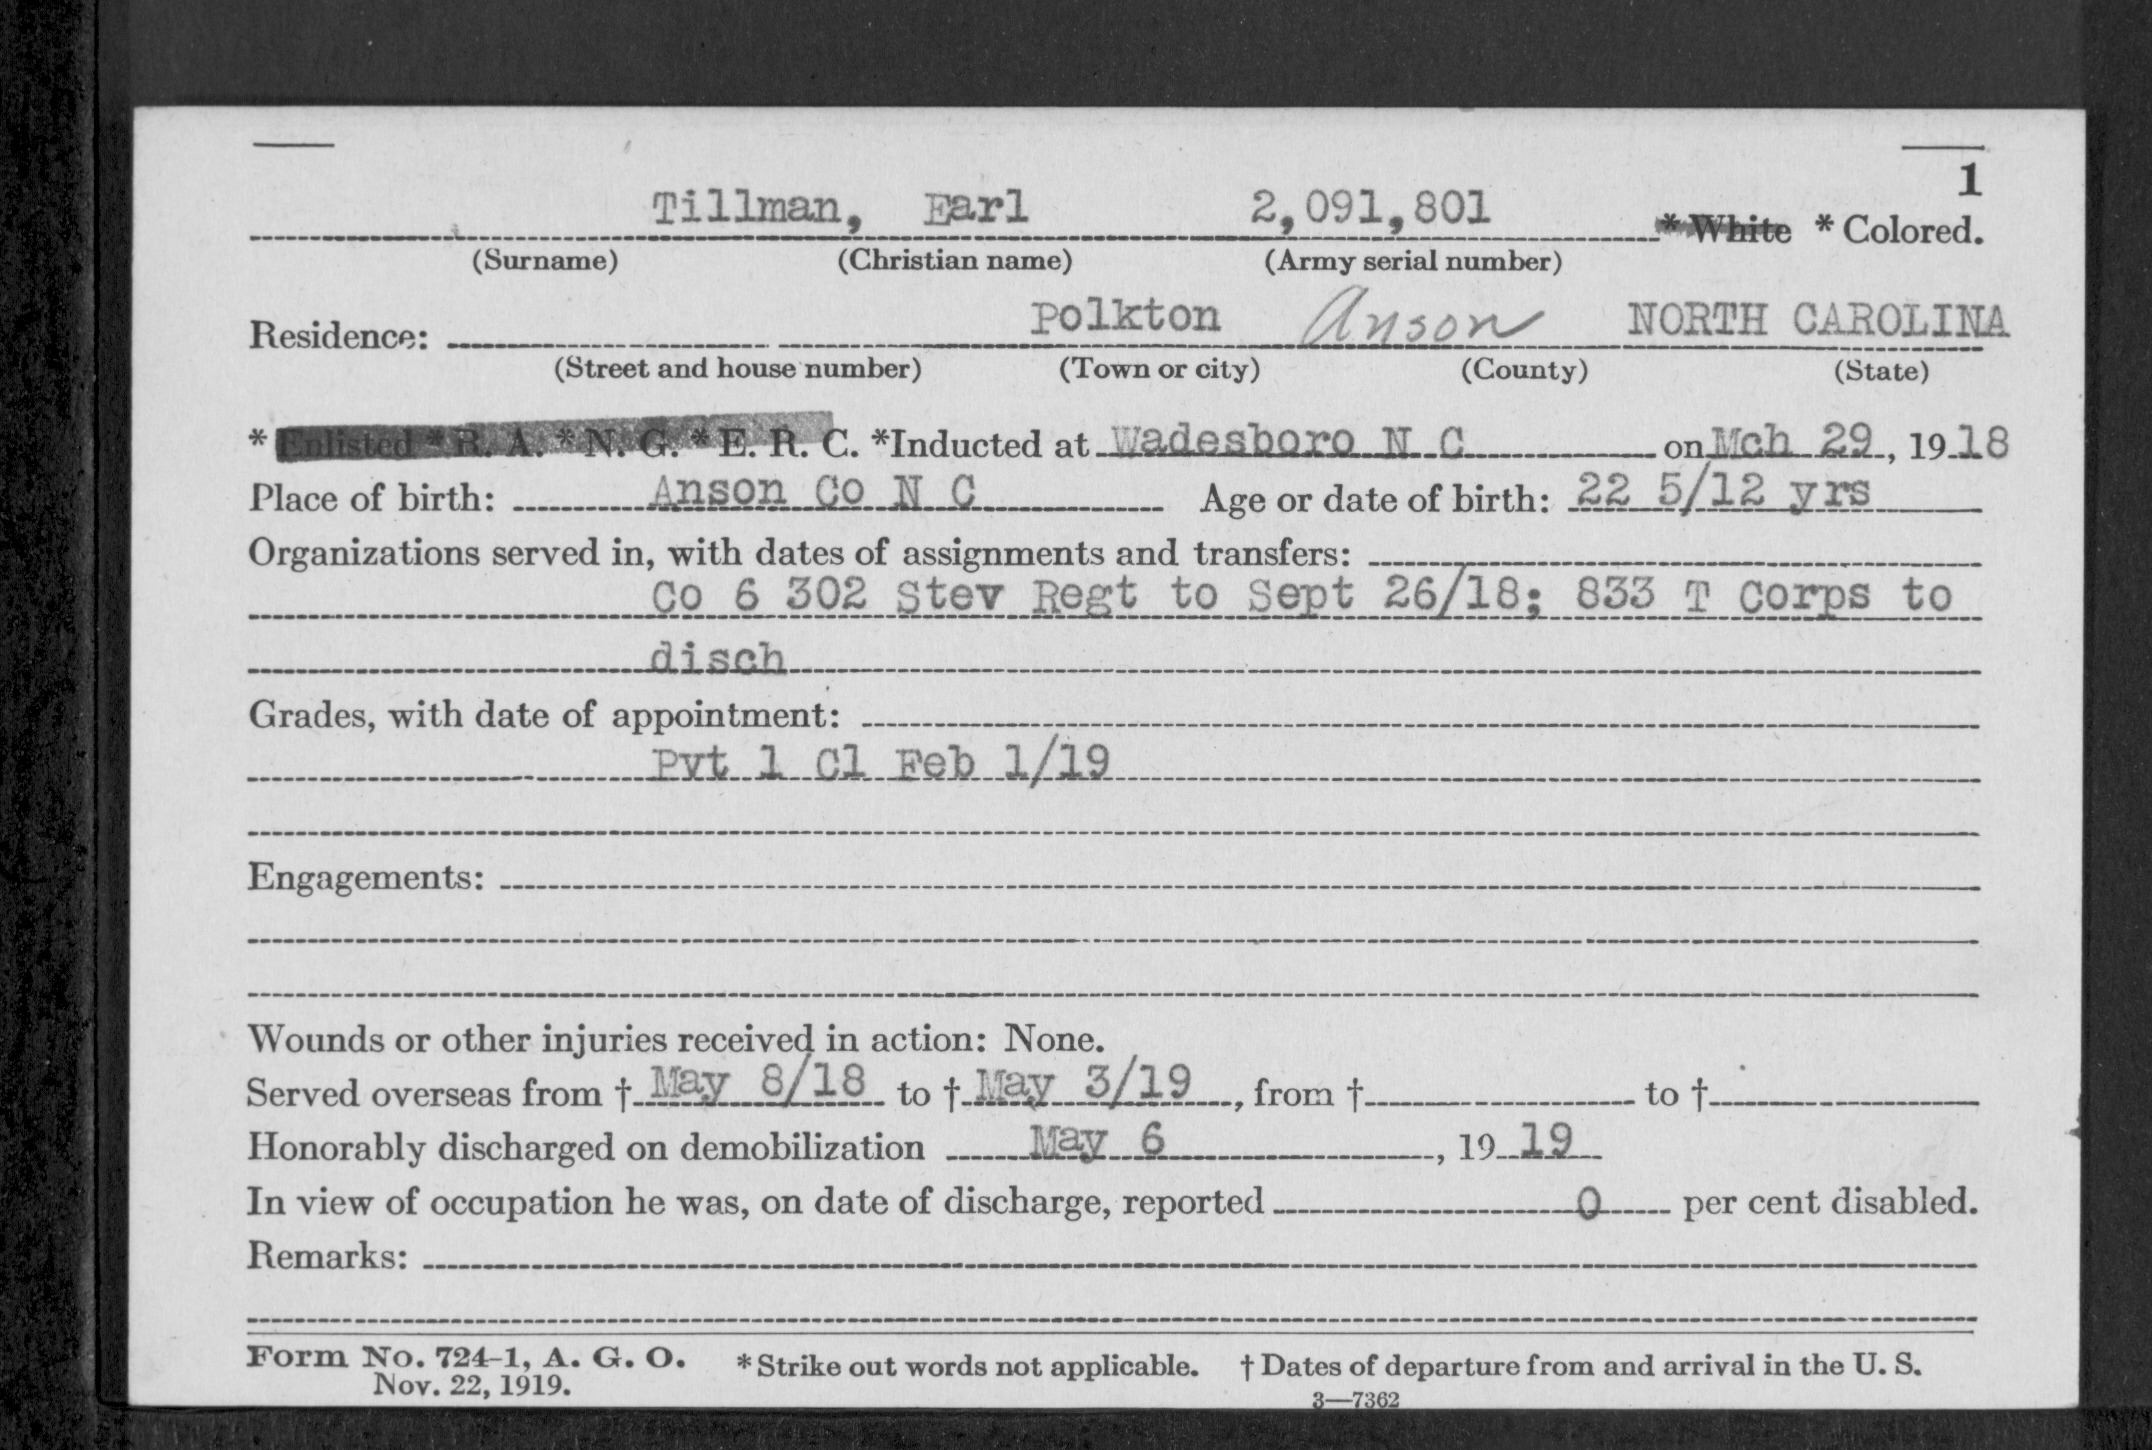 1
Tillman, Earl 2,091,801 * White * Colored.
(Surname) (Christian name) (Army serial number)
Residence: Polkton Anson NORTH CAROLINA
(Street and house number) (Town or city) (County) (State)
* Enlisted * R. A. * N. G. * E. R. C. *Inducted at Wadesboro N C on Mch 29, 1918
Place of birth: Anson Co N C Age or date of birth: 22 5/12 yrs
Organizations served in, with dates of assignments and transfers:
Co 6 302 Stev Regt to Sept 26/18; 833 T Corps to
disch
Grades, with date of appointment:
Pvt 1 Cl Feb 1/19
Engagements:
Wounds or other injuries received in action: None.
Served overseas from † May 8/18 to † May 3/19, from † to †
Honorably discharged on demobilization May 6, 1919
In view of occupation he was, on date of discharge, reported 0 per cent disabled.
Remarks:
Form No. 724-1, A. G. O. * Strike out words not applicable. † Dates of departure from and arrival in the U. S.
Nov. 22, 1919.
3—7362